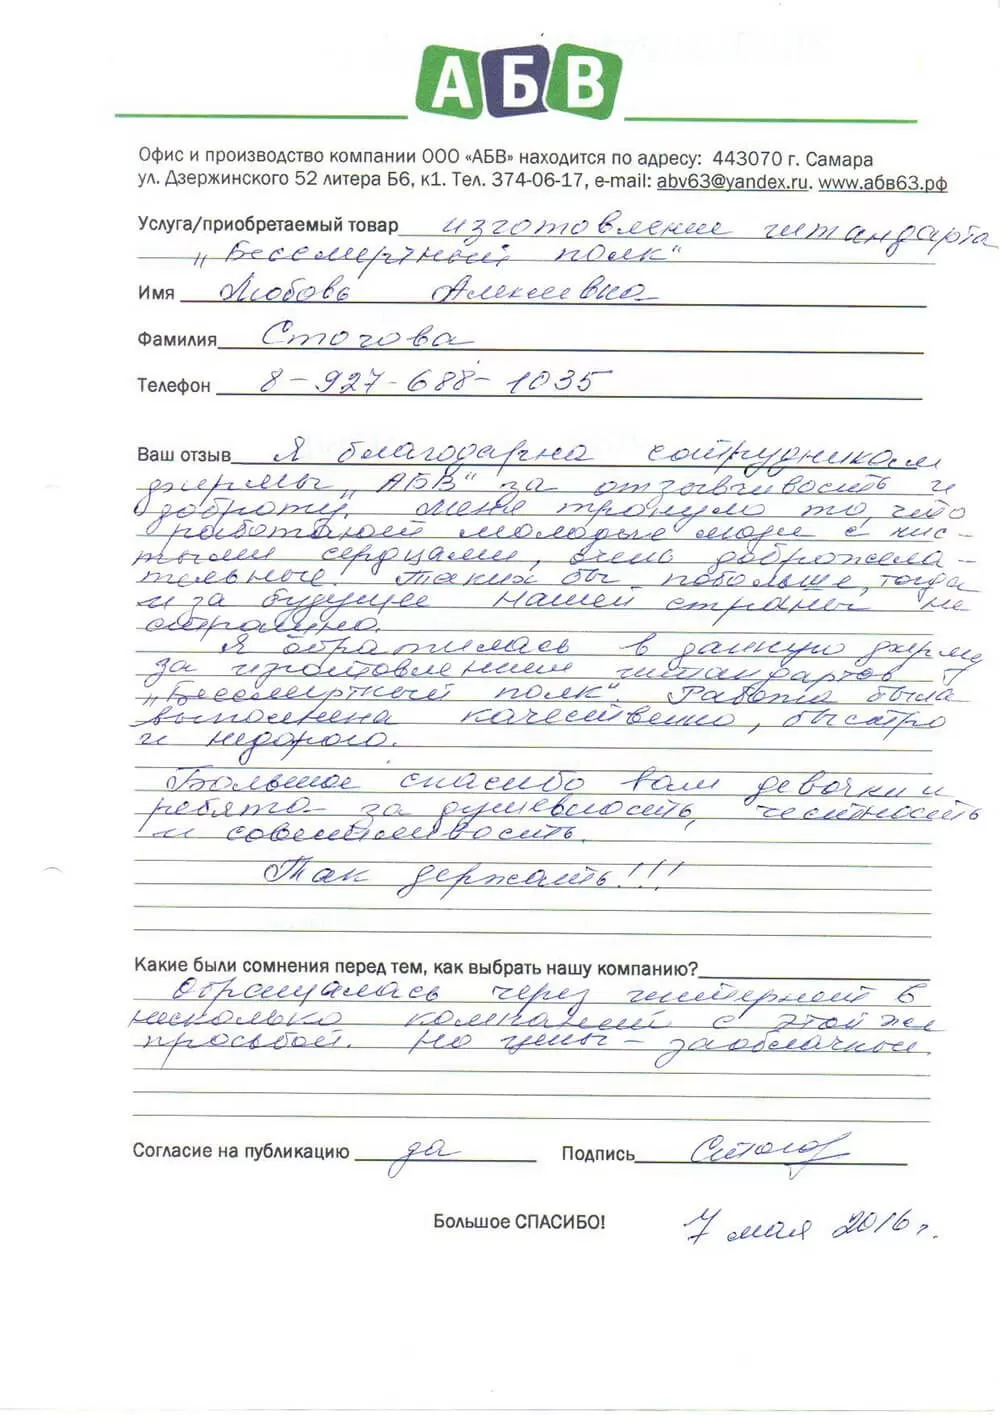 АБВ
Офис и производство компании ООО «АБВ» находится по адресу: 443070 г. Самара
ул. Дзержинского 52 литера Б6, к1. Тел. 374-06-17, e-mail: abv63@yandex.ru. www.абв63.рф
Услуга/приобретаемый товар изготовление штандарта
„Бессмертный полк"
Имя Любовь Алексеевна
Фамилия Стогова
Телефон 8-927-688-1035
Ваш отзыв Я благодарна сотрудникам
фирмы „АБВ" за отзывчивость и
доброту. Меня тронуло то, что
работают молодые люди с чис-
тыми сердцами, очень доброжела-
тельные. Таких бы побольше, тогда
и за будущее нашей страны не
страшно.
Я обратилась в данную фирму
за изготовлением штандартов
„Бессмертный полк". Работа была
выполнена качественно, быстро
и недорого.
Большое спасибо вам девочки и
ребята за душевность, честность
и совестливость.
Так держать!!!
Какие были сомнения перед тем, как выбрать нашу компанию?
Обращалась через интернет в
несколько компаний с этой же
просьбой. Но цены - заоблачные.
Согласие на публикацию да Подпись Стогов
Большое СПАСИБО! 7 мая 2016 г.